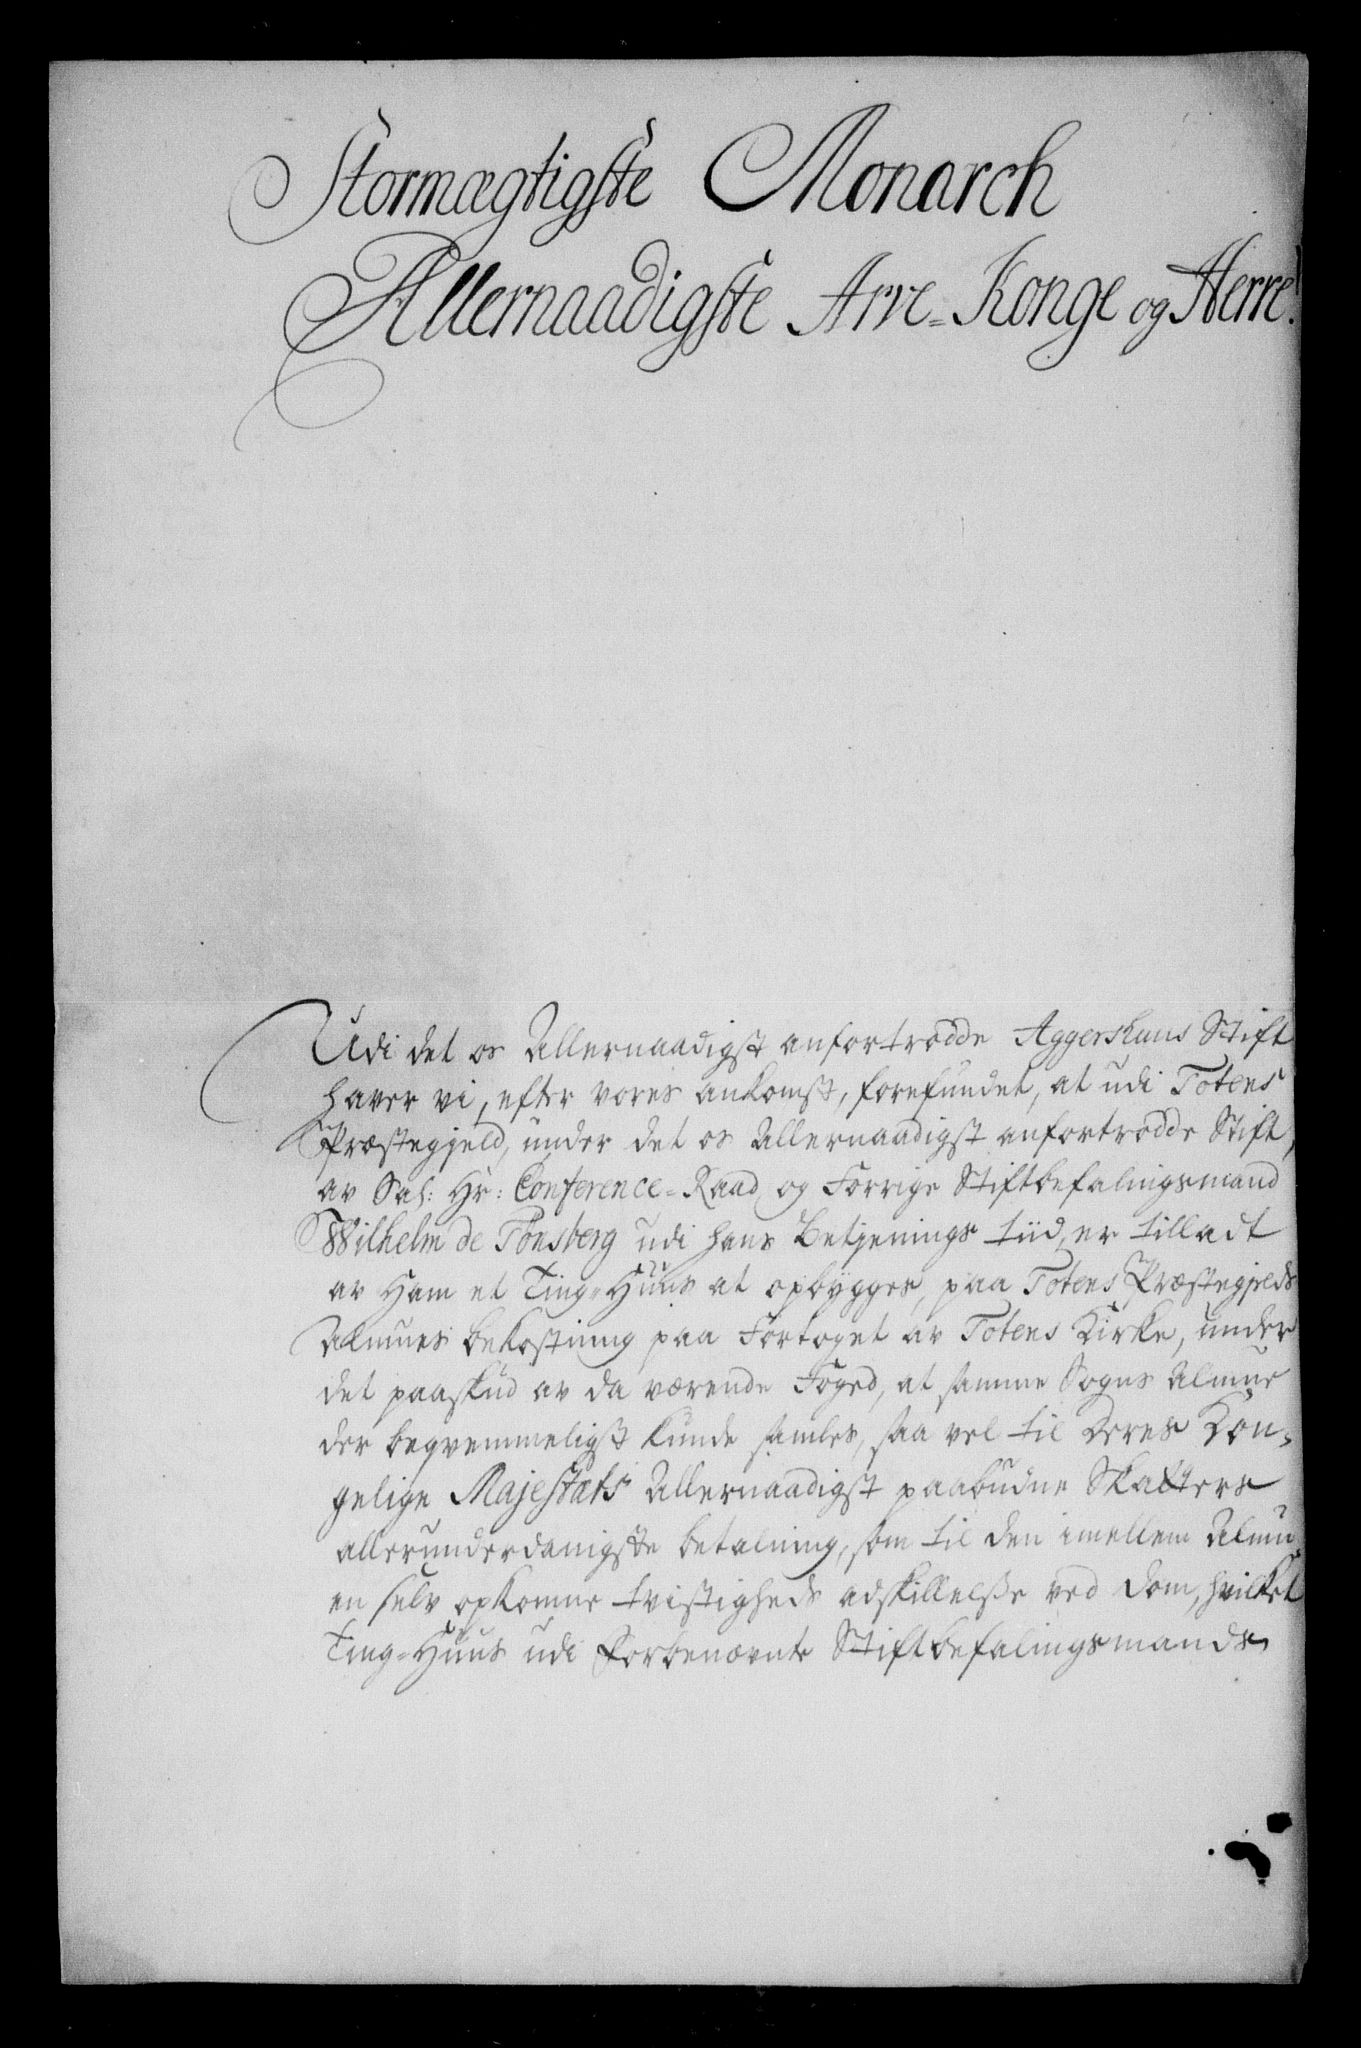 Stormægtigste Monarch
Allernaadigste Arve-Konge og Herre!
Udi det os Allernaadigst anfortrodde Aggershuus Stift
haver vi, efter vores ankomst, forefundet, at udi Totens
Præstegjeld, under det os Allernaadigst anfortrodde Stift,
av Sal: Hr: Conference-Raad og Forrige Stiftbefalingsmand
Wilhelm de Tönsberg udi hans Betjenings tiid, er tilladt
av Ham et Ting-Huus at opbygges, paa Totens Præstegjelds
Almues bekostning paa Fortoget av Totens Kirke, under
det paaskud av da værende Foged, at samme Sogns Almue
der beqvemmeligst kunde samles, saa vel til Deres Kon-
gelige Majestæts Allernaadigst paabudne Skatters
allerunderdanigste betalning, som til den imellem Almu
en selv opkomne tvistigheds adskillelsse ved dom, hvilket
Ting-Huus udi Forbenævnte Stiftbefalingsmands